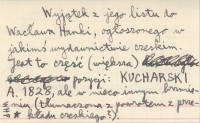 Wyjątek z jego listu do
Wacława Hanki, ogłoszonego w
jakimś wydawnictwie czeskim.
Jest to część (większa)
pozycji: KUCHARSKI
A. 1828, ale w nieco innym brzmie-
niu (tłumaczona z powrotem z prze-
kładu czeskiego?).